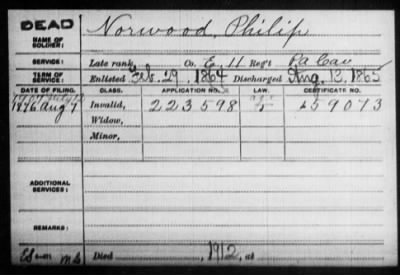 DEAD Norwood, Philip
NAME OF SOLDIER:
SERVICE: Late rank, Co. E, 11 Reg't Pa Cav
TERM OF SERVICE: Enlisted Feb. 29, 1864 Discharged Aug. 13, 1865
DATE OF FILING. CLASS. APPLICATION NO. LAW. CERTIFICATE NO.
1876 Aug 7 Invalid, 223598 459073
Widow,
Minor,
ADDITIONAL SERVICES:
REMARKS:
Died , 1912, at